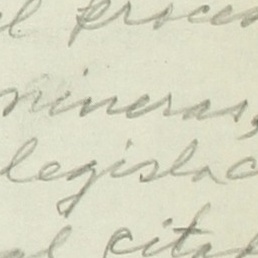 l proces
mineras,
legislac
al citad